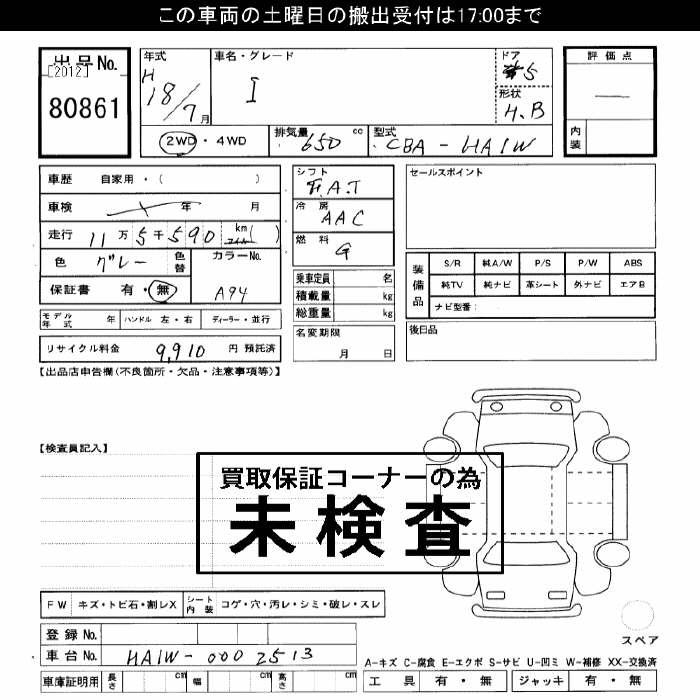 この車両の土曜日の搬出受付は17:00まで
出品No.
[2012]
80861
年式
H
18/7月
車名・グレード
I
ドア
5
形状
H.B
評価点
—
内装
2WD・4WD
排気量 650 cc
型式 CBA-HA1W
車歴 自家用・( )
車検 年 月
走行 11万5千590 km マイル( )
色 グレー
色替
カラーNo.
A94
保証書 有・無
シフト
F.A.T
冷房
AAC
燃料
G
乗車定員 名
積載量 kg
総重量 kg
名変期限
月 日
セールスポイント
装備品
S/R 純A/W P/S P/W ABS
純TV 純ナビ 革シート 外ナビ エアB
ナビ型番:
後日品
モデル年式 年 ハンドル 左・右 ディーラー・並行
リサイクル料金 9,910 円 預託済
【出品店申告欄(不良箇所・欠品・注意事項等)】
【検査員記入】
買取保証コーナーの為
未検査
FW キズ・トビ石・割レX
シート内装 コゲ・穴・汚レ・シミ・破レ・スレ
スペア
登録No.
車台No. HA1W-0002513
車庫証明用 長さ cm 幅 cm 高さ cm
A-キズ C-腐食 E-エクボ S-サビ U-凹ミ W-補修 XX-交換済
工具 有・無 ジャッキ 有・無